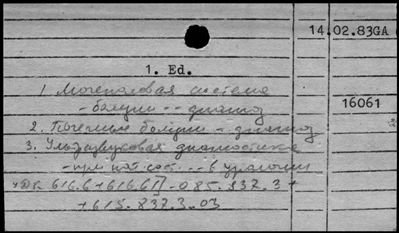 14.02.83GA
1. Ed.
1 Мочеполовая система
- болезни -- диагноз
16061
2. Почечные болезни - диагноз
3. Ультразвуковая диагностика
- при пат. сост. -- в урологии
616.6+616.61]-085.837.3+
+615.837.3.03